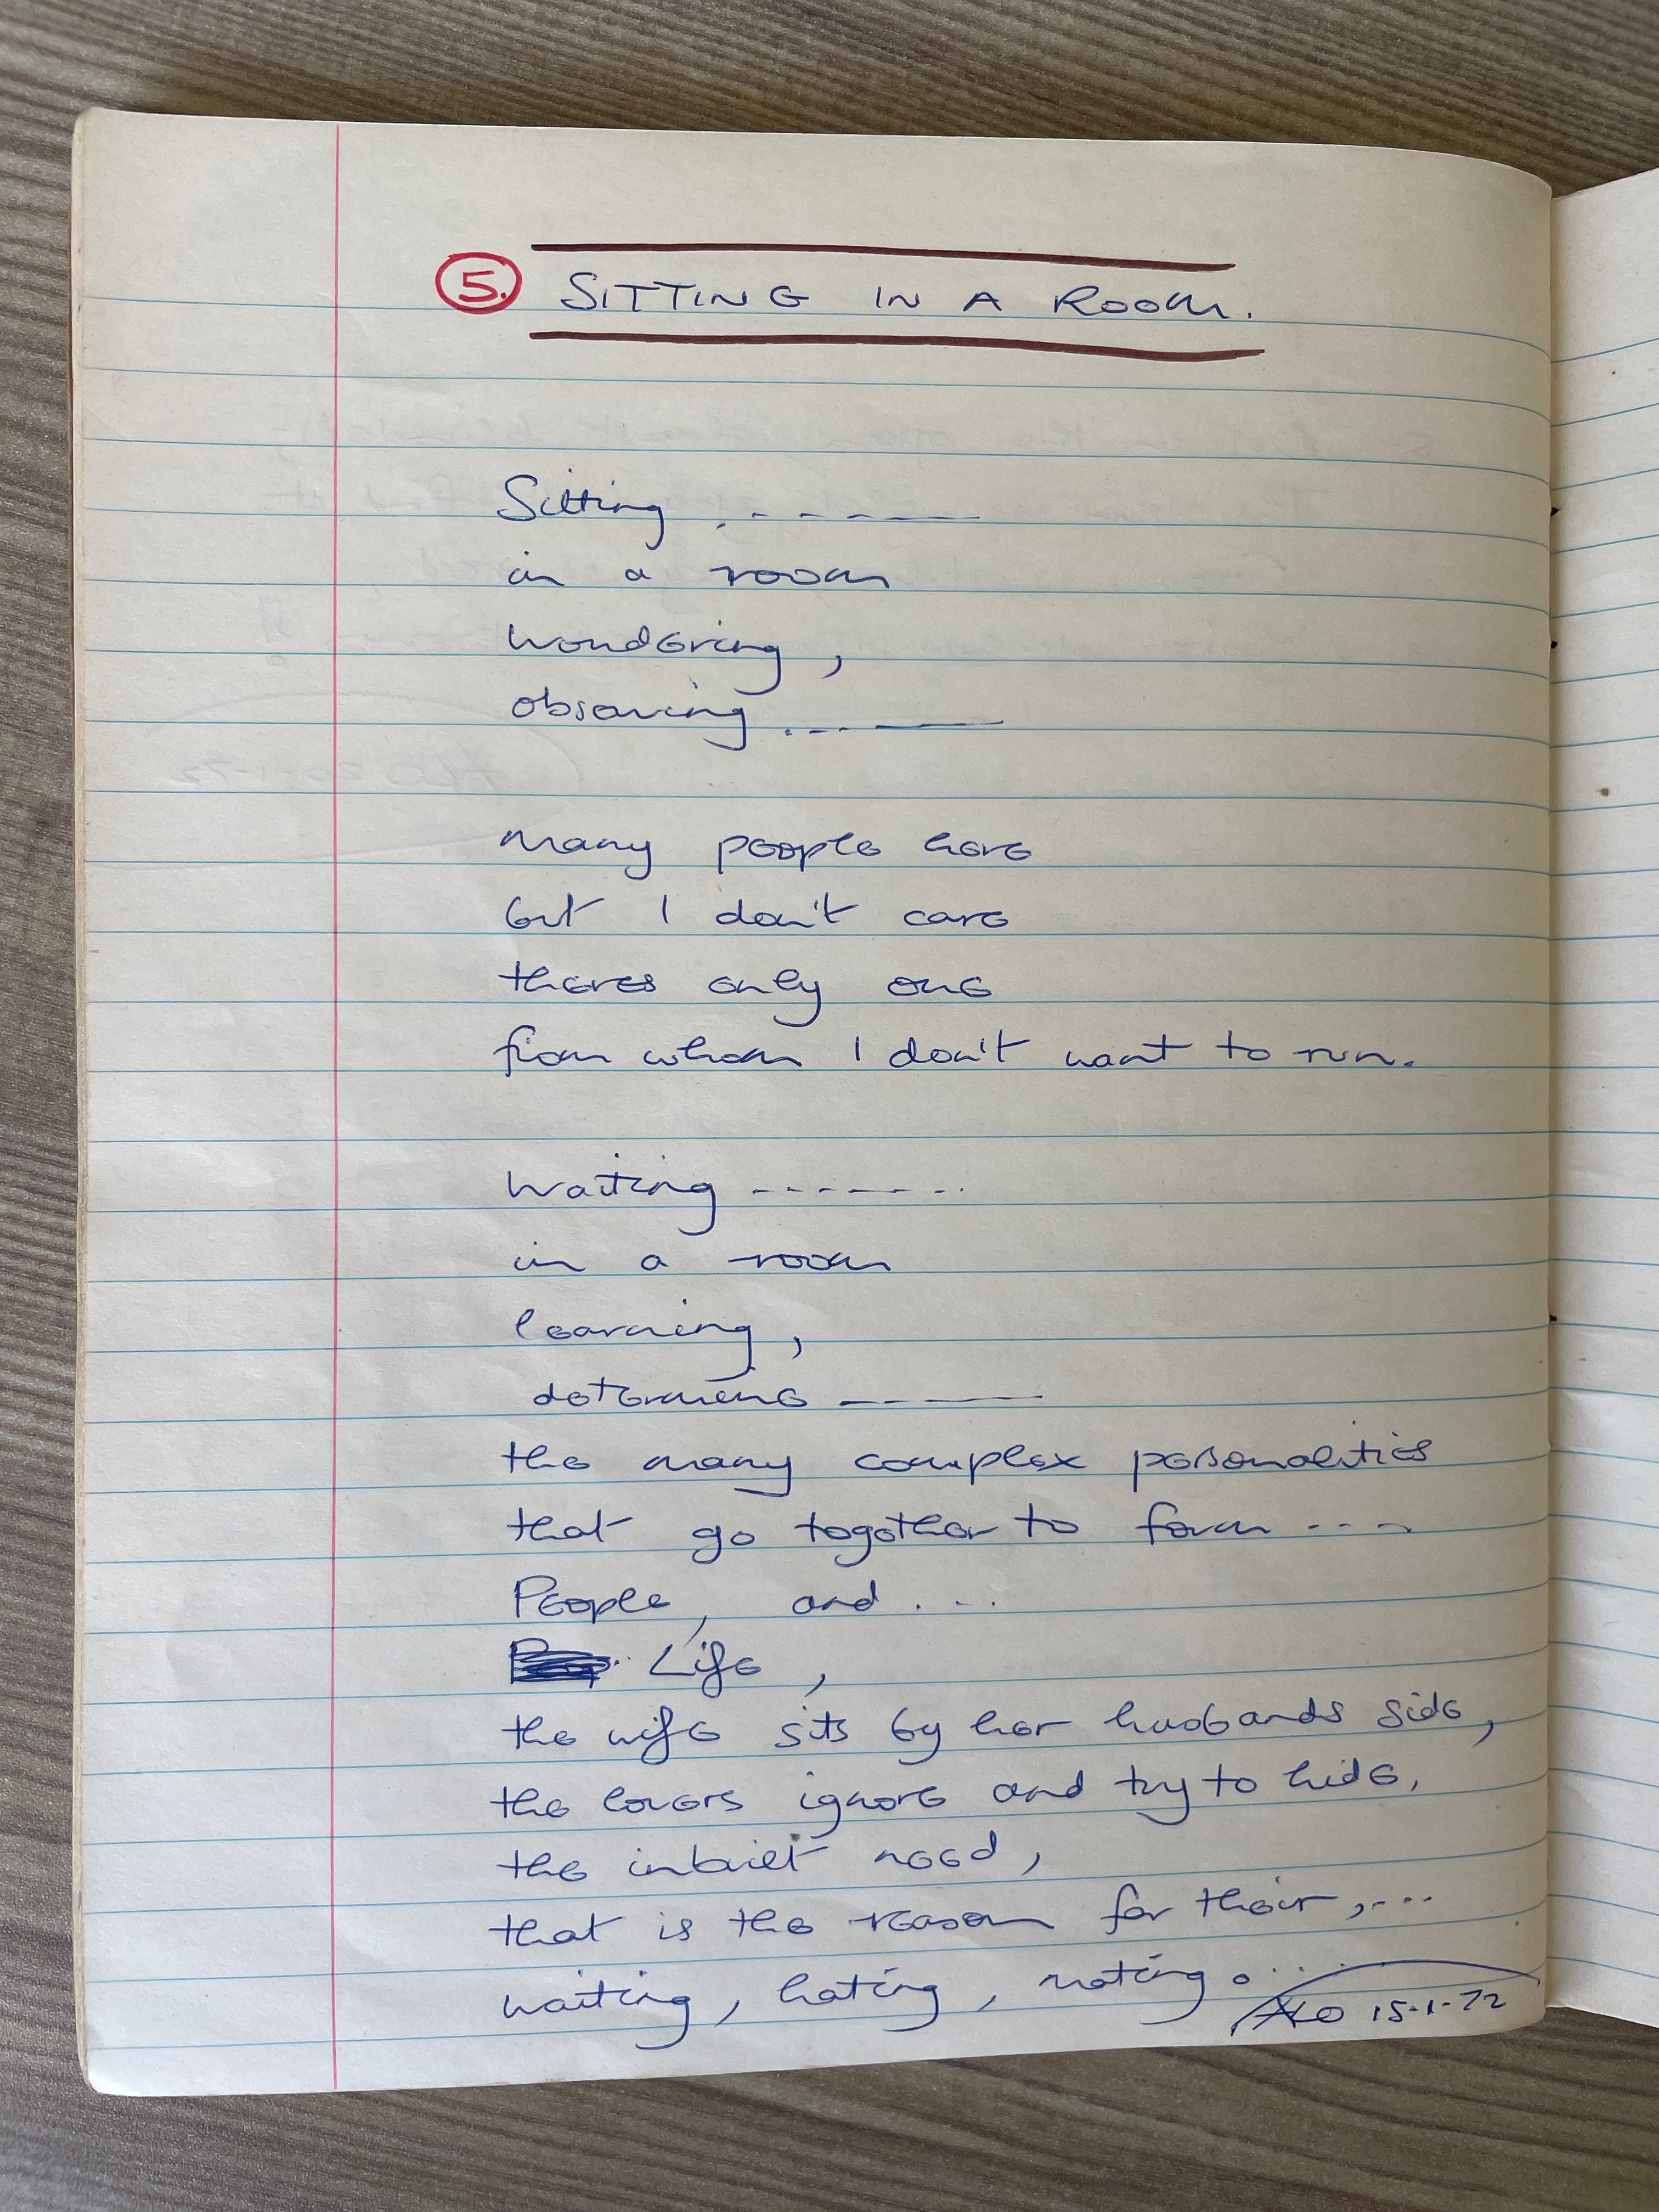 5. SITTING IN A ROOM.
Sitting . - - - - —
in a room
wondering,
observing . . . - —
many people here
but I don't care
theres only one
from whom I don't want to run.
Waiting - - - - - - . .
in a room
learning,
determine - — —
the many complex personalities
that go together to form - - -
People, and . . .
Life,
the wife sits by her husbands side,
the lovers ignore and try to hide,
the inbuilt need,
that is the reason for their, . . .
waiting, hating, mating. . .
15-1-72